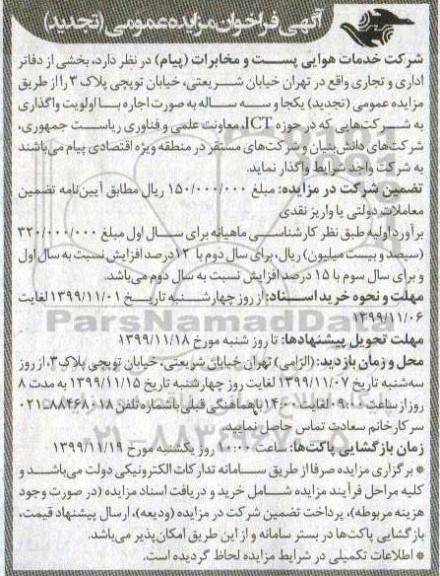 آگهی فراخوان مزایده عمومی (تجدید)
شرکت خدمات هوایی پست و مخابرات (پیام) در نظر دارد، بخشی از دفاتر
اداری و تجاری واقع در تهران خیابان شریعتی، خیابان توپچی پلاک ۳ را از طریق
مزایده عمومی (تجدید) یکجا و سه ساله به صورت اجاره با اولویت واگذاری
به شرکت‌هایی که در حوزه ICT، معاونت علمی و فناوری ریاست جمهوری،
شرکت‌های دانش بنیان و شرکت‌های مستقر در منطقه ویژه اقتصادی پیام می‌باشند
به شرکت واجد شرایط واگذار نماید.
تضمین شرکت در مزایده: مبلغ ۱۵۰/۰۰۰/۰۰۰ ریال مطابق آیین‌نامه تضمین
معاملات دولتی یا واریز نقدی
برآورد اولیه طبق نظر کارشناسی ماهیانه برای سال اول مبلغ ۳۲۰/۰۰۰/۰۰۰
(سیصد و بیست میلیون) ریال، برای سال دوم با ۱۲درصد افزایش نسبت به سال اول
و برای سال سوم با ۱۵ درصد افزایش نسبت به سال دوم می‌باشد.
مهلت و نحوه خرید اسناد: از روز چهارشنبه تاریخ ۱۳۹۹/۱۱/۰۱ لغایت
۱۳۹۹/۱۱/۰۶
مهلت تحویل پیشنهادها: تا روز شنبه مورخ ۱۳۹۹/۱۱/۱۸
محل و زمان بازدید: (الزامی) تهران خیابان شریعتی، خیابان توپچی پلاک ۳، از روز
سه‌شنبه تاریخ ۱۳۹۹/۱۱/۰۷ لغایت روز چهارشنبه تاریخ ۱۳۹۹/۱۱/۱۵ به مدت ۸
روز از ساعت ۰۹:۰۰ لغایت ۱۴:۰۰ با هماهنگی قبلی با شماره تلفن ۰۲۱-۸۸۴۶۸۰۱۸
سرکار خانم سعادت تماس حاصل نمایید.
زمان بازگشایی پاکت‌ها: ساعت ۱۰:۰۰ روز یکشنبه مورخ ۱۳۹۹/۱۱/۱۹
● برگزاری مزایده صرفا از طریق سامانه تدارکات الکترونیکی دولت می‌باشد و
کلیه مراحل فرآیند مزایده شامل خرید و دریافت اسناد مزایده (در صورت وجود
هزینه مربوطه)، پرداخت تضمین شرکت در مزایده (ودیعه)، ارسال پیشنهاد قیمت،
بازگشایی پاکت‌ها در بستر سامانه و از این طریق امکان‌پذیر می‌باشد.
● اطلاعات تکمیلی در شرایط مزایده لحاظ گردیده است.
ParsNamadData
۰۲۱-۸۸۳۴۹۶۷۰-۵